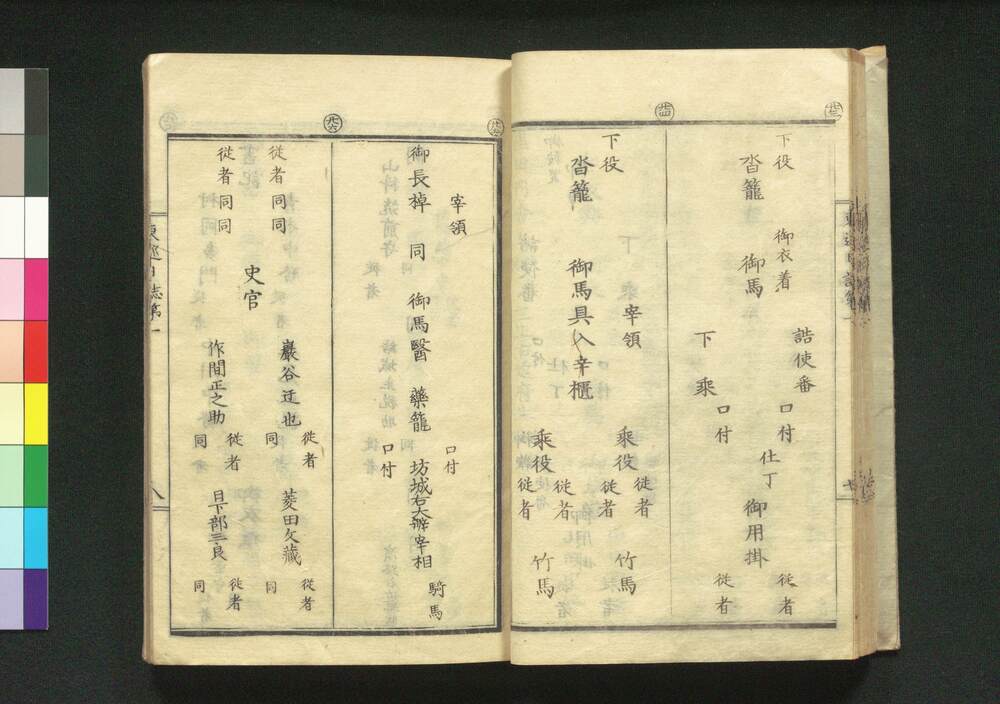 下役
沓籠
御衣着
御馬
詰使番
下乘
口付
口付
仕丁
御用掛
從者
從者
下役
沓籠
宰領
御馬具入辛櫃
乘役
乘役
從者
從者
從者
從者
竹馬
竹馬
宰領
御長棹
同
御馬醫
藥籠
口付
口付
坊城右大辨宰相
騎馬
從者同同
從者同同
史官
巖谷迂也
作間正之助
從者
同
從者
同
菱田文藏
日下部三郎
從者
同
從者
同
東巡日誌第一
八